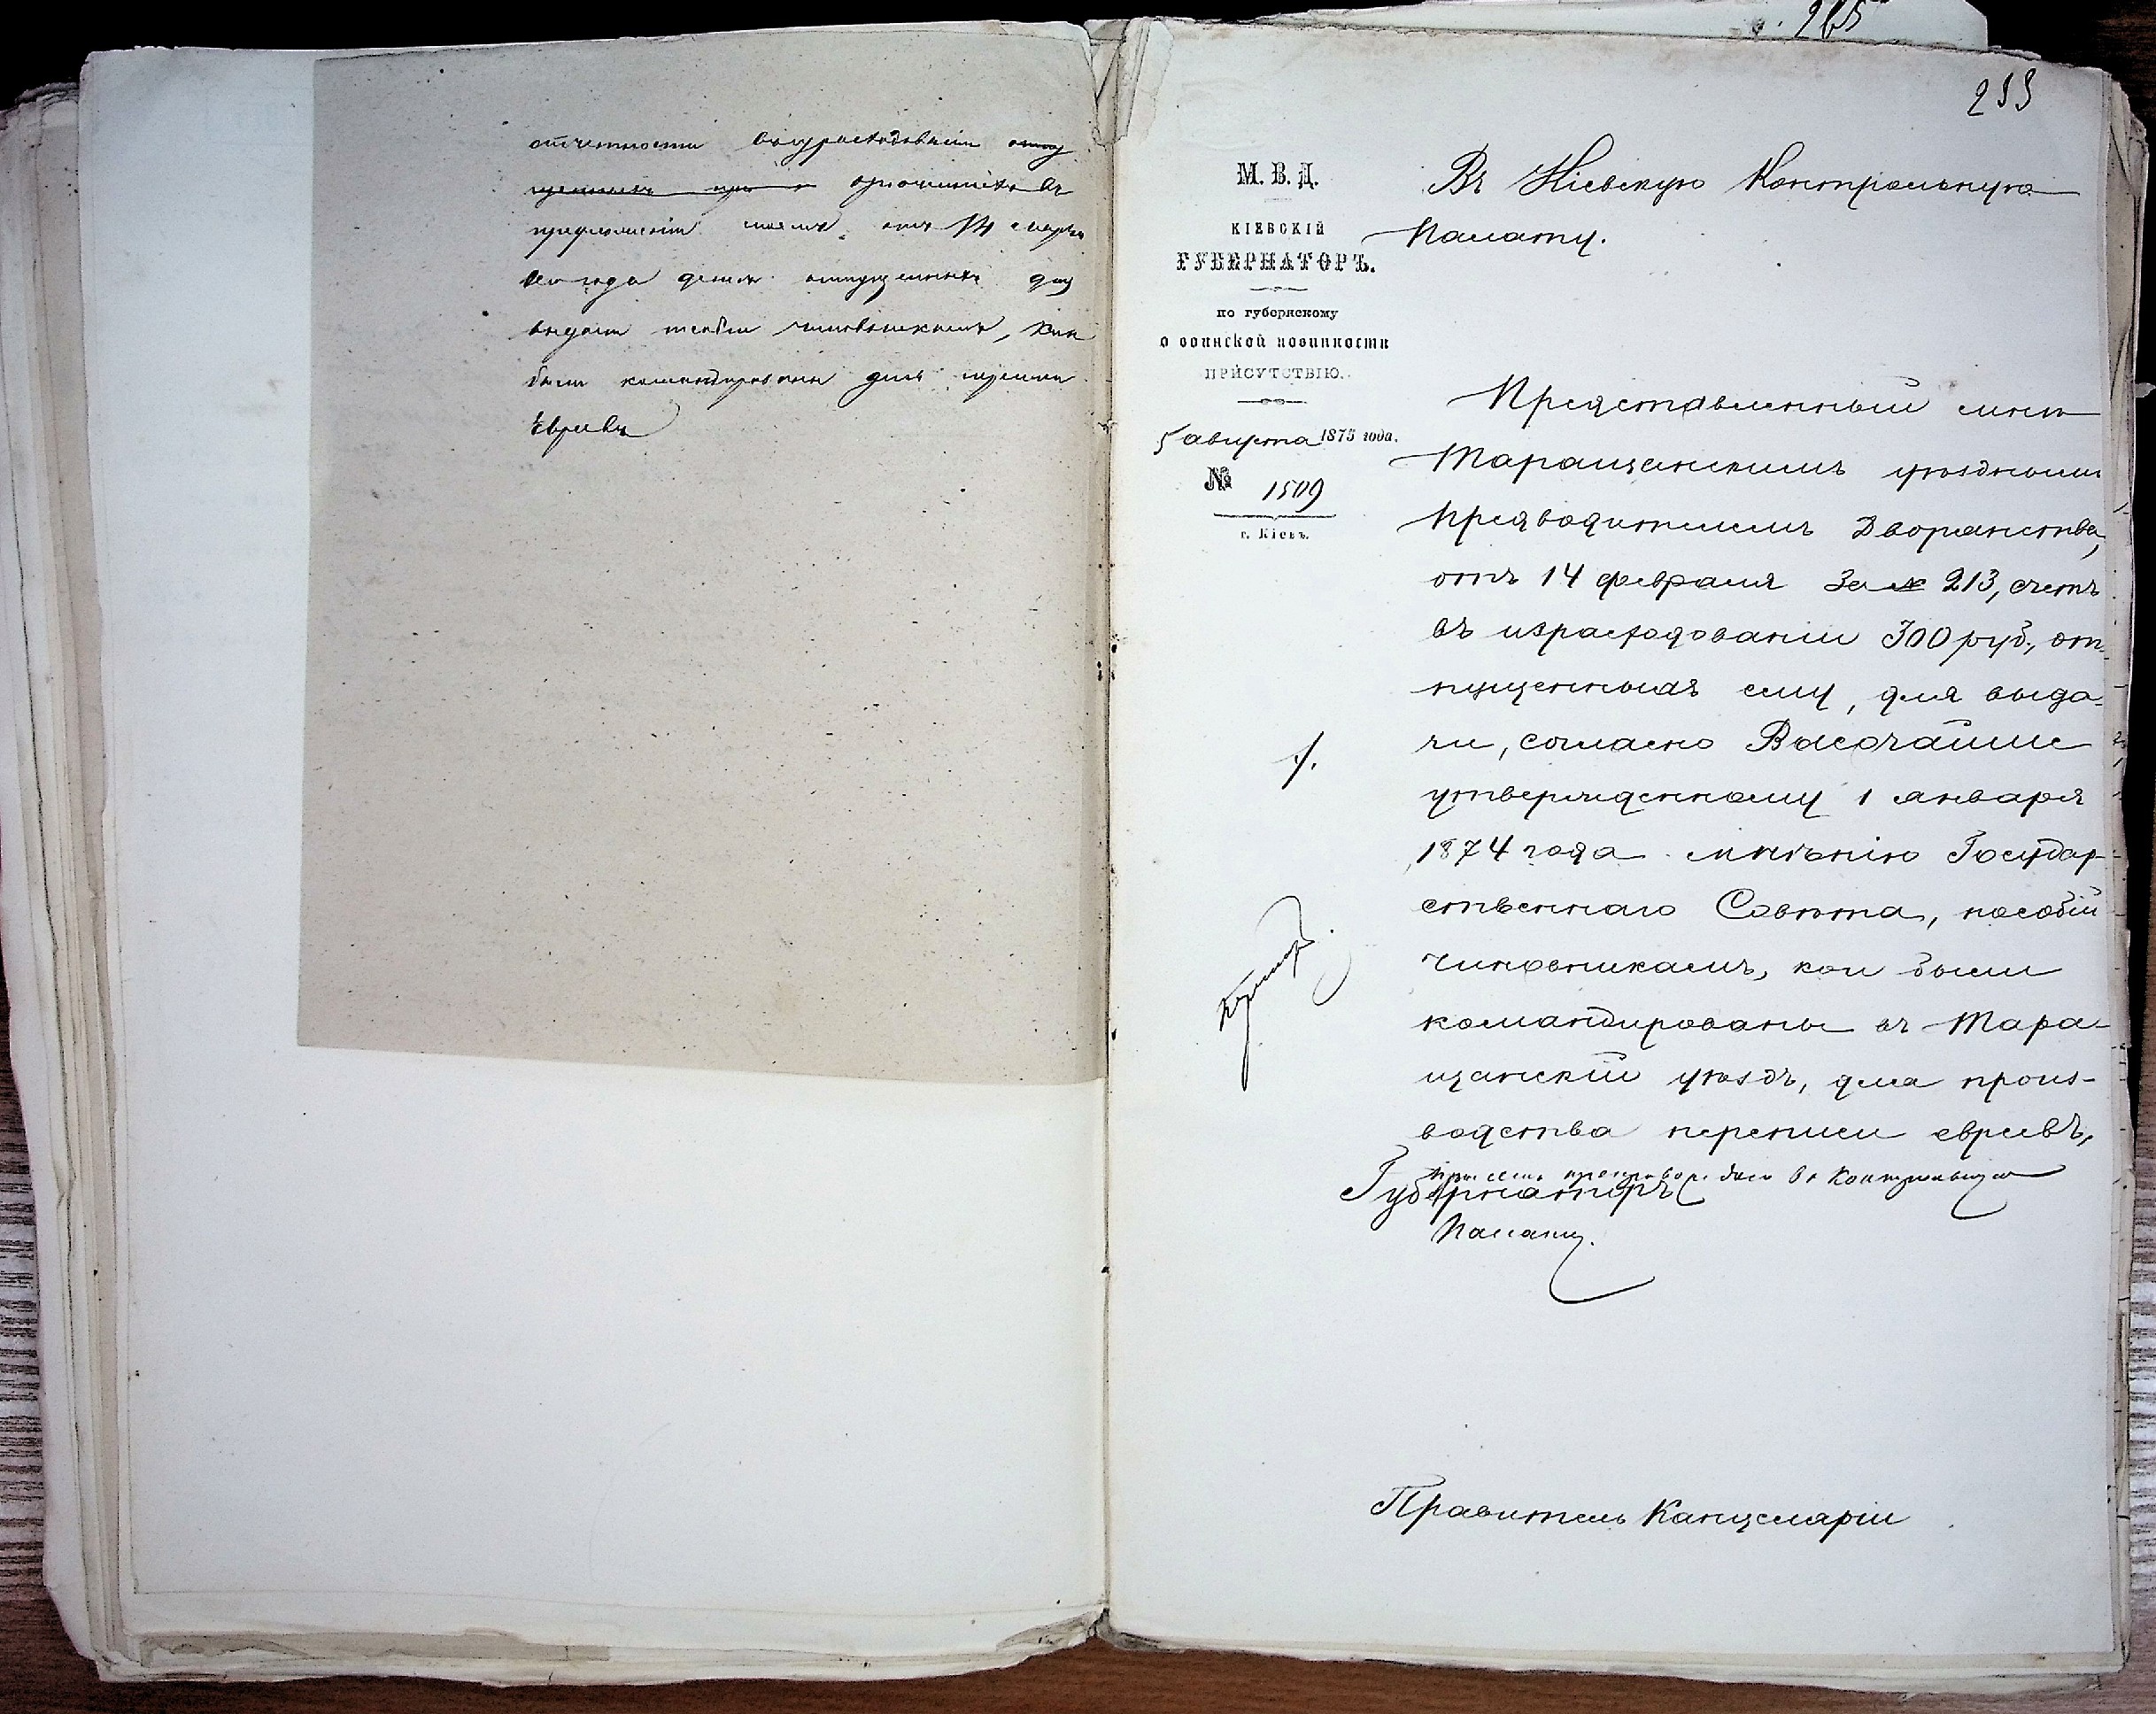 отчетности
въ
14 марта
сего года денегъ отпущенныхъ для
выдачи чиновникамъ, кои
были командированы для переписи
Евреевъ
265
М. В. Д.
КІЕВСКІЙ
ГУБЕРНАТОРЪ.
по губернскому
о воинской повинности
ПРИСУТСТВІЮ.
5 августа 1875 года.
№ 1509
г. Кіевъ.
Въ Кіевскую Контрольную
Палату.
Представленный мнѣ
Таращанскимъ уѣзднымъ
Предводителемъ Дворянства,
отъ 14 февраля за № 213, счетъ
въ израсходованіи 300 руб., от-
пущенныхъ ему, для выда-
чи, согласно Высочайше
утвержденному 1 января
1874 года мнѣнію Государ-
ственнаго Совѣта, пособій
чиновникамъ, кои были
командированы въ Тара-
щанскій уѣздъ, для произ-
водства переписи евреевъ,
при семъ препровождаю въ Контрольную
Губернаторъ
Палату.
Правитель Канцеляріи